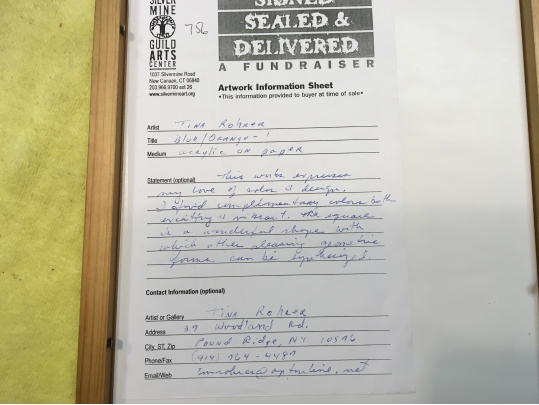 SILVER
MINE
GUILD
ARTS
CENTER
1037 Silvermine Road
New Canaan, CT 06840
203.966.9700 ext 26
www.silvermineart.org
786
SIGNED
SEALED &
DELIVERED
A FUNDRAISER
Artwork Information Sheet
•This information provided to buyer at time of sale•
Artist Tina Rohrer
Title Blue/Orange-1
Medium acrylic on paper
Statement (optional) This work expresses
my love of color & design.
I find complementary colors both
exciting & vibrant. The square
is a wonderful shape with
which other pleasing geometric
forms can be synthesized.
Contact Information (optional)
Artist or Gallery Tina Rohrer
Address 37 Woodland Rd.
City, ST, Zip Pound Ridge, NY 10576
Phone/Fax (914) 764-4487
Email/Web optonline.net